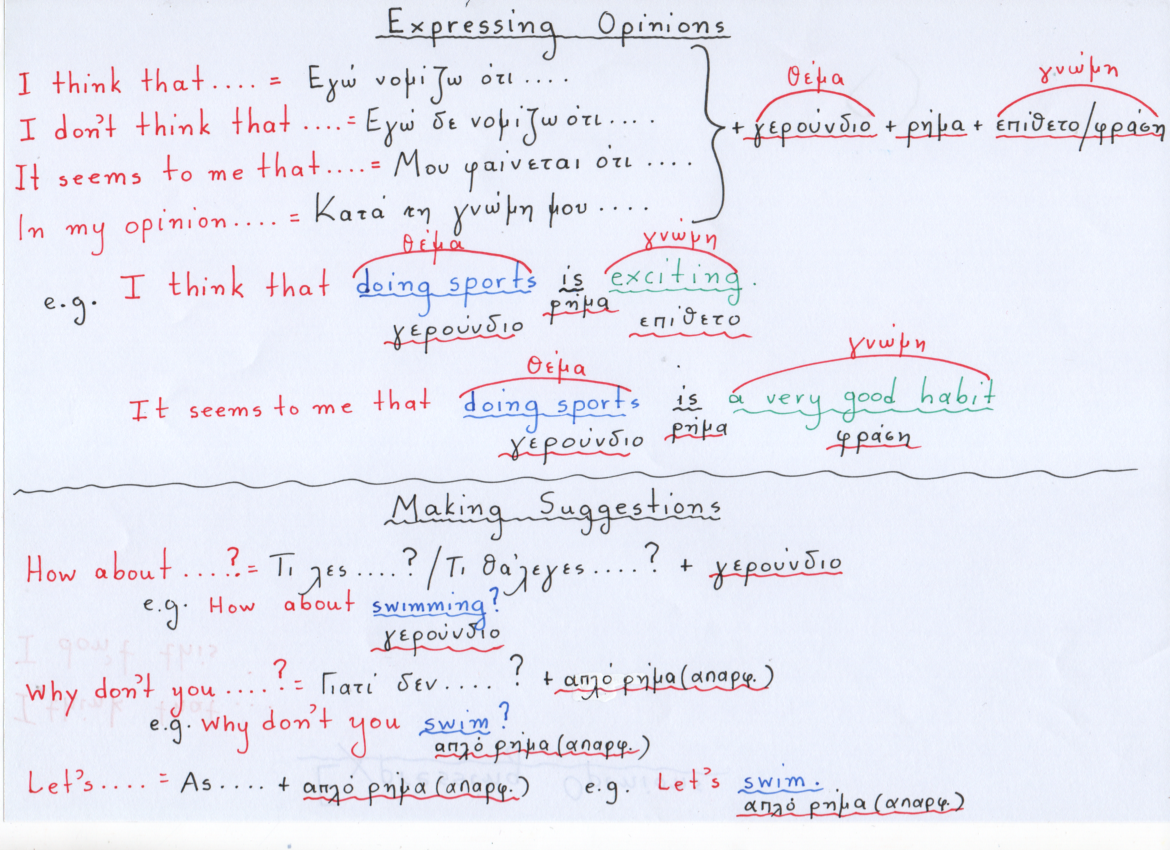 Expressing Opinions
θέμα γνώμη
I think that.... = Εγώ νομίζω ότι ....
I don't think that ....= Εγώ δε νομίζω ότι ....
+ γερούνδιο + ρήμα + επίθετο/φράση
It seems to me that....= Μου φαίνεται ότι ....
In my opinion.... = Κατά τη γνώμη μου ....
θέμα γνώμη
e.g. I think that doing sports is exciting.
γερούνδιο ρήμα επίθετο
θέμα γνώμη
It seems to me that doing sports is a very good habit
γερούνδιο ρήμα φράση
Making Suggestions
How about ....?= Τι λες ....? / Τι θα λεγες ....? + γερούνδιο
e.g. How about swimming?
γερούνδιο
Why don't you ....?= Γιατί δεν ....? + απλό ρήμα (απαρφ.)
e.g. Why don't you swim?
απλό ρήμα (απαρφ.)
Let's.... = Ας.... + απλό ρήμα (απαρφ.) e.g. Let's swim.
απλό ρήμα (απαρφ.)